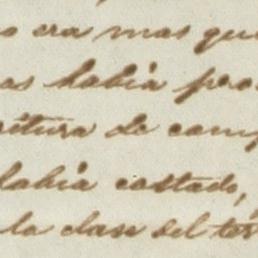 o era mas que
as habia pro
critura de comp
habia costado,
la clase del ter